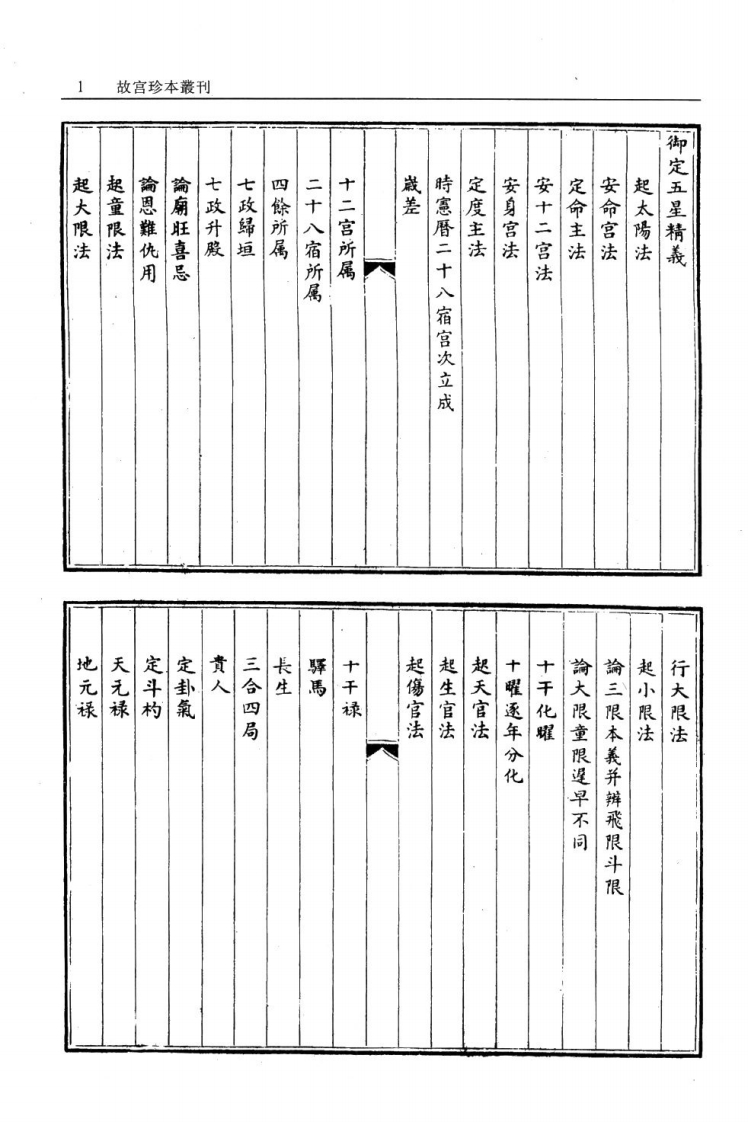 1 故宫珍本叢刊
御定五星精義
起太陽法
安命宫法
定命主法
安十二宫法
安身宫法
定度主法
時憲曆二十八宿宫次立成
嵗差
十二宫所属
二十八宿所属
四餘所属
七政歸垣
七政升殿
論廟旺喜忌
論恩難仇用
起童限法
起大限法
行大限法
起小限法
論三限本義并辨飛限斗限
論大限童限遲早不同
十干化曜
十曜逐年分化
起天官法
起生官法
起傷官法
十干禄
驛馬
長生
三合四局
貴人
定卦氣
定斗杓
天元禄
地元禄